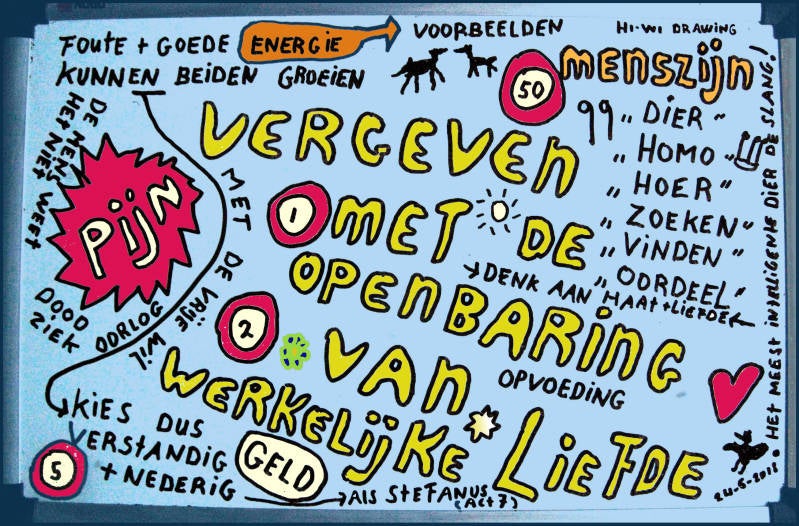 FOUTE + GOEDE ENERGIE
KUNNEN BEIDEN GROEIEN
VOORBEELDEN
HI-WI DRAWING
50 MENSZIJN
99 "DIER"
"HOMO"
"HOER"
"ZOEKEN"
"VINDEN"
"OORDEEL"
DENK AAN HAAT + LIEFDE
VERGEVEN
1 MET DE
OPENBARING
2 VAN
OPVOEDING
WERKELIJKE LIEFDE
DE MENS
HET NIET WEET
PIJN
DOOD
ZIEK
OORLOG
MET DE VRIJE WIL
KIES DUS
VERSTANDIG
+ NEDERIG
5
GELD
ALS STEFANUS
(ACT 7)
HET MEEST INTELLIGENTE DIER DE SLANG!
24-6-2018